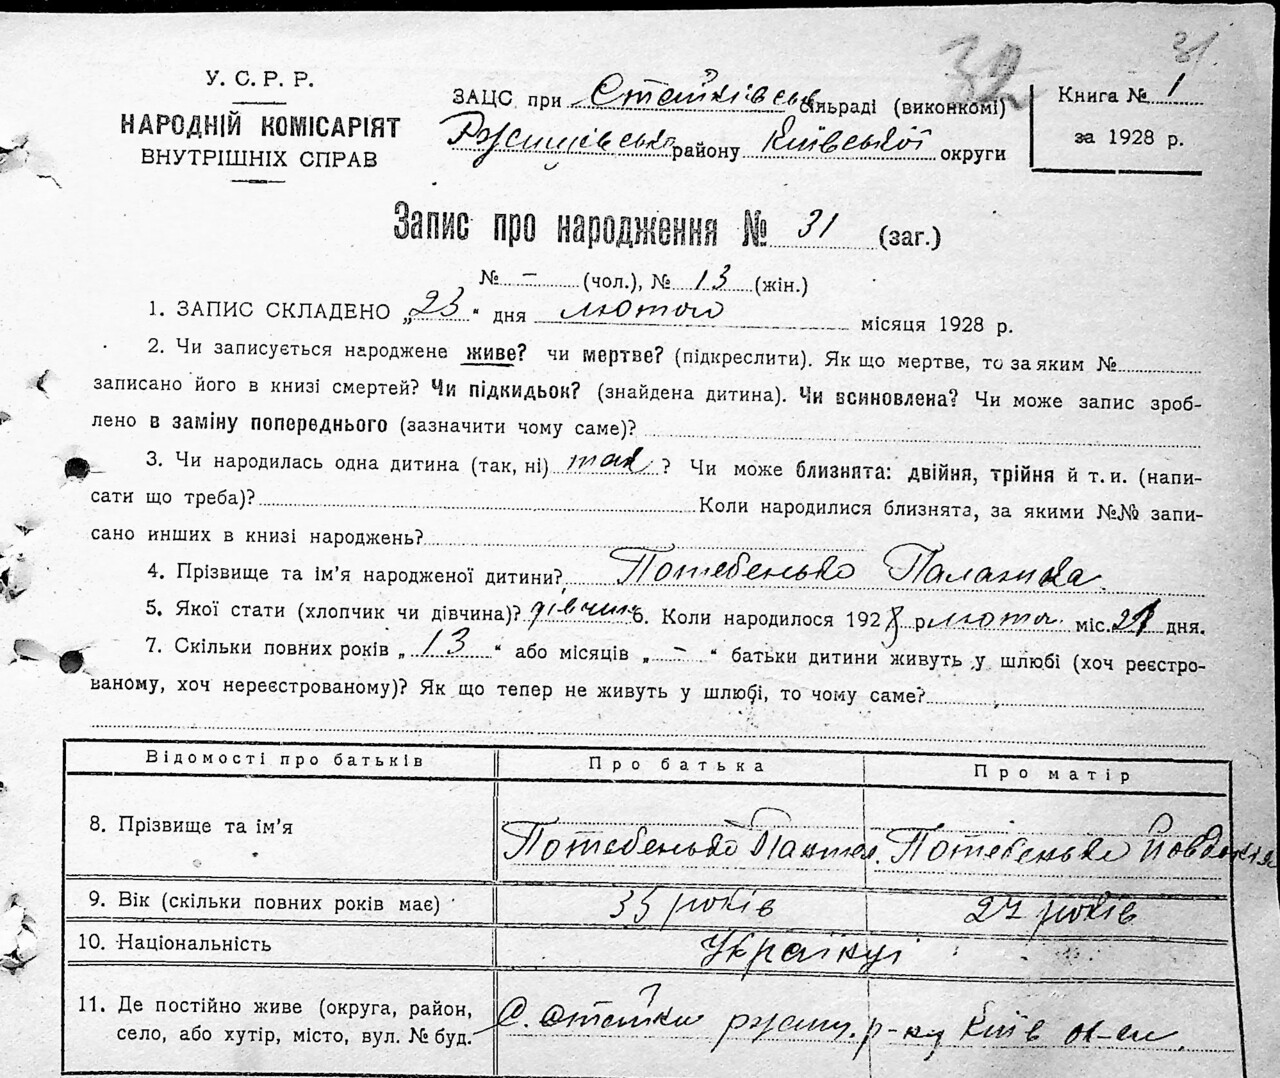 32
31.
У. С. Р. Р.
НАРОДНІЙ КОМІСАРІЯТ
ВНУТРІШНІХ СПРАВ
ЗАЦС при Стайківськ сільраді (виконкомі)
Ржищівсько району Київської округи
Книга № 1
за 1928 р.
Запис про народження № 31 (заг.)
№ - (чол.), № 13 (жін.)
1. ЗАПИС СКЛАДЕНО „23“ дня лютого місяця 1928 р.
2. Чи записується народжене живе? чи мертве? (підкреслити). Як що мертве, то за яким №
записано його в книзі смертей? Чи підкидьок? (знайдена дитина). Чи всиновлена? Чи може запис зроб-
лено в заміну попереднього (зазначити чому саме)?
3. Чи народилась одна дитина (так, ні) так ? Чи може близнята: двійня, трійня й т. и. (напи-
сати що треба)? Коли народилися близнята, за якими №№ запи-
сано инших в книзі народжень?
4. Прізвище та ім’я народженої дитини? Потебенько Палажка
5. Якої стати (хлопчик чи дівчина)? дівчина 6. Коли народилося 1928 р люто. міс. 21 дня.
7. Скільки повних років „ 13 “ або місяців „ - “ батьки дитини живуть у шлюбі (хоч реєстро-
ваному, хоч нереєстрованому)? Як що тепер не живуть у шлюбі, то чому саме?
Відомості про батьків Про батька Про матір
8. Прізвище та ім’я Потебенько Пантел. Потебенько Йовдокія
9. Вік (скільки повних років має) 35 років 27 років
10. Національність Українці
11. Де постійно живе (округа, район, С. Стайки ржищ. р-ну Київ ок-ги.
село, або хутір, місто, вул. № буд.